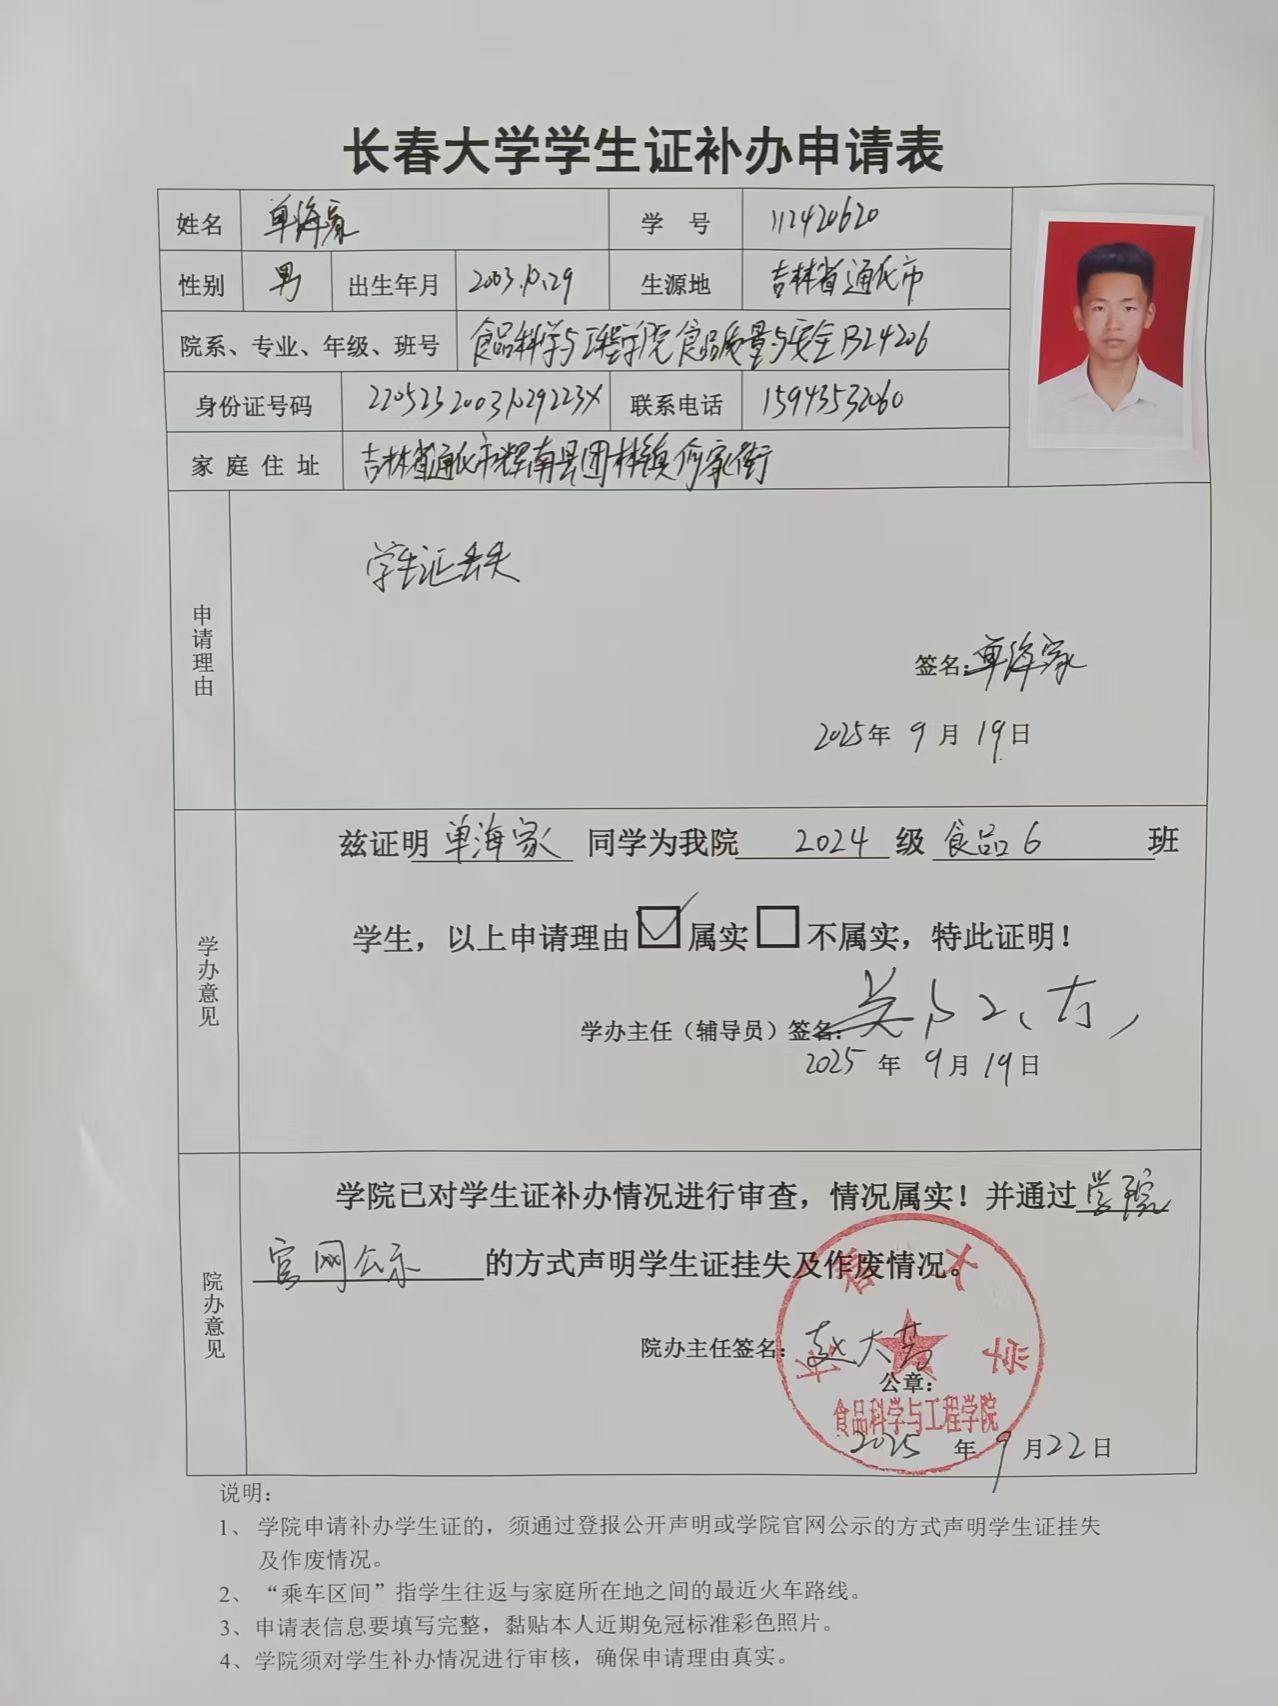 长春大学学生证补办申请表
姓名 单海家 学 号 112420620
性别 男 出生年月 2003.10.29 生源地 吉林省通化市
院系、专业、年级、班号 食品科学与工程学院食品质量与安全B24206
身份证号码 22052320031029223X 联系电话 15943532060
家庭住址 吉林省通化市辉南县团林镇何家街
申请理由
学生证丢失
签名:单海家
2025年 9 月 19日
学办意见
兹证明 单海家 同学为我院 2024 级 食品6 班
学生，以上申请理由 属实 不属实，特此证明！
学办主任（辅导员）签名:
2025 年 9月 19日
院办意见
学院已对学生证补办情况进行审查，情况属实！并通过学院
官网公示 的方式声明学生证挂失及作废情况。
院办主任签名: 赵大
公章:
长春大学
食品科学与工程学院
2025 年 9 月22日
说明:
1、学院申请补办学生证的，须通过登报公开声明或学院官网公示的方式声明学生证挂失
及作废情况。
2、“乘车区间”指学生往返与家庭所在地之间的最近火车路线。
3、申请表信息要填写完整，黏贴本人近期免冠标准彩色照片。
4、学院须对学生补办情况进行审核，确保申请理由真实。